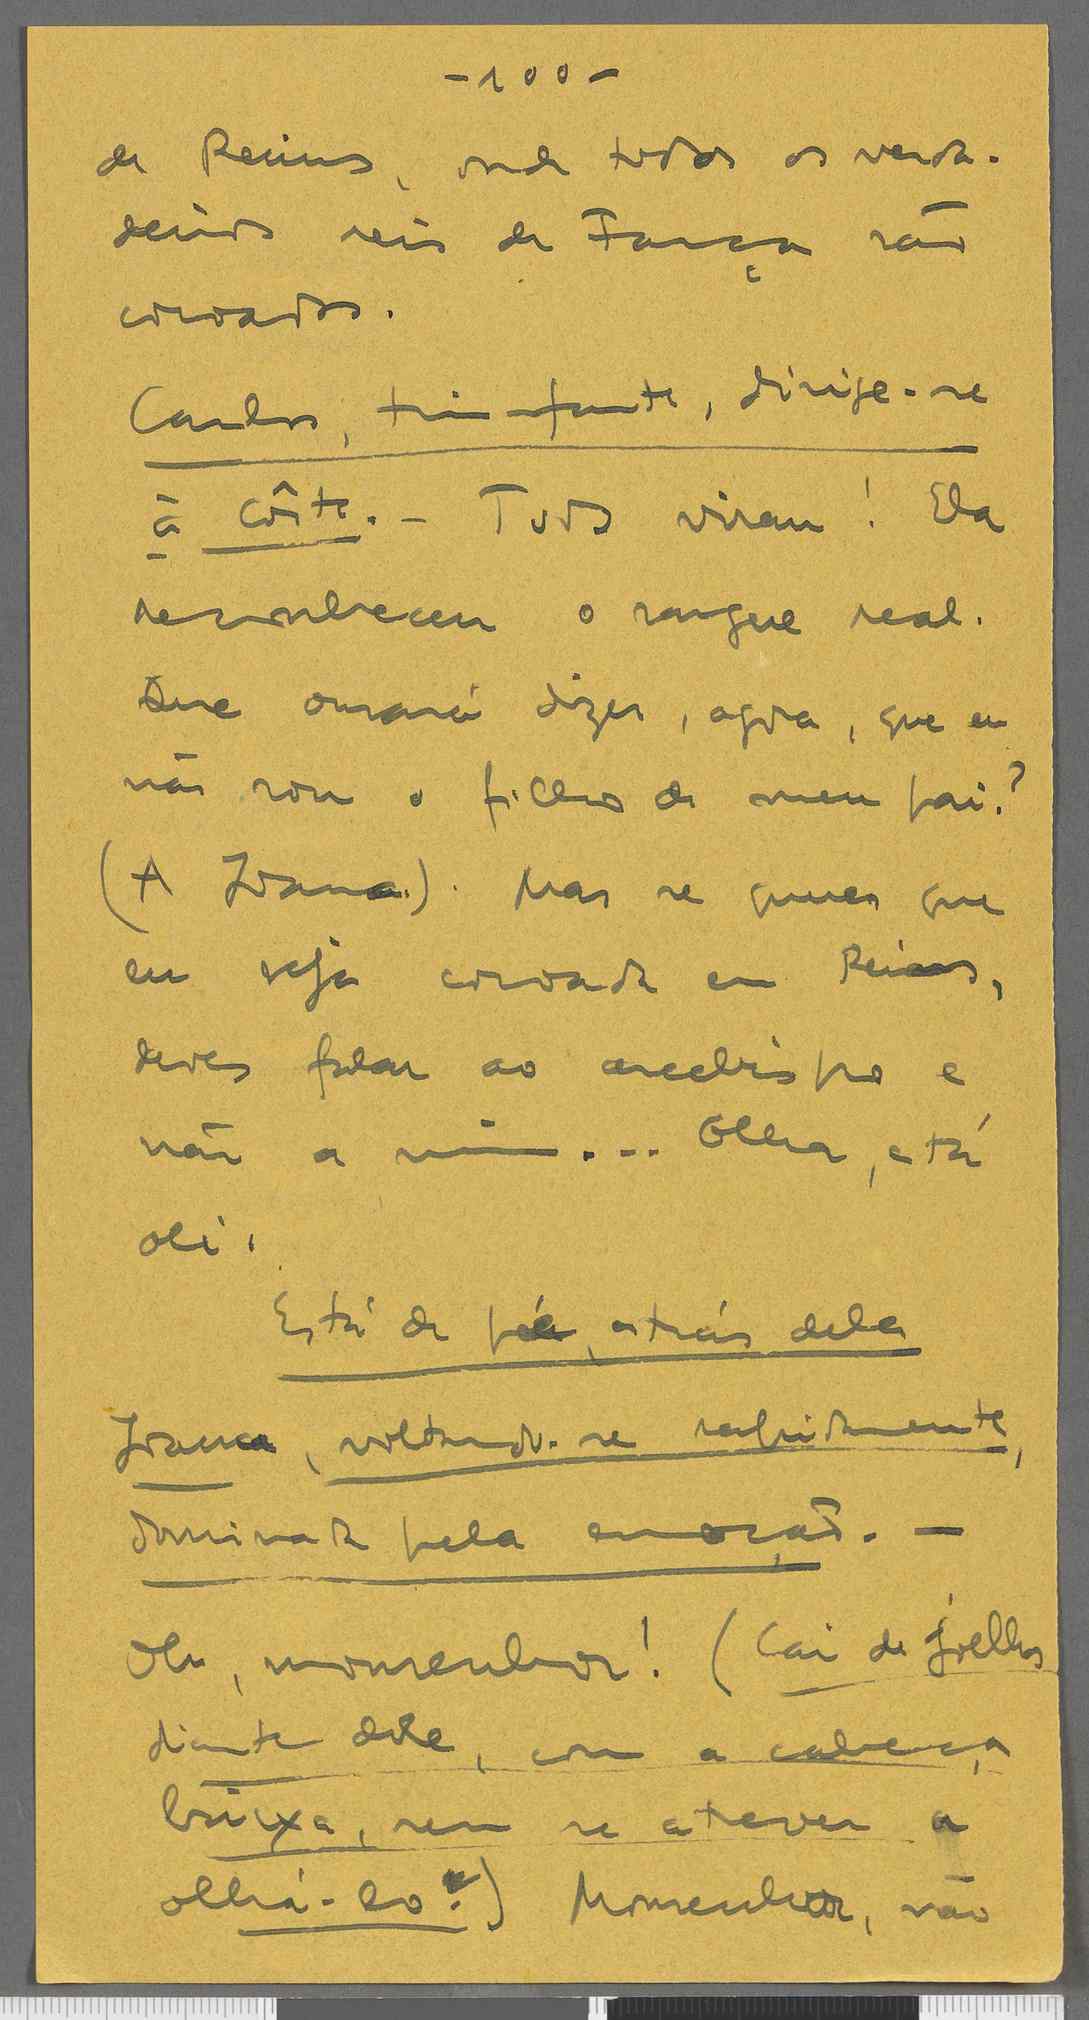 -100-
de Reims, onde todos os verda-
deiros reis de França são
coroados.
Carlos, triunfante, dirige-se
à côrte. - Todos viram! Ela
reconheceu o sangue real.
Que ousará dizer, agora, que eu
não sou o filho de meu pai?
(A Joana). Mas se queres que
eu seja coroado em Reims,
deves falar ao arcebispo e
não a mim... Olha, está
ali.
Está de pé, atrás dela
Joana, voltando-se rapidamente,
dominada pela emoção. -
Oh, monsenhor! (Cai de joelhos
diante dele, com a cabeça
baixa, sem se atrever a
olhá-lo.) Monsenhor, não